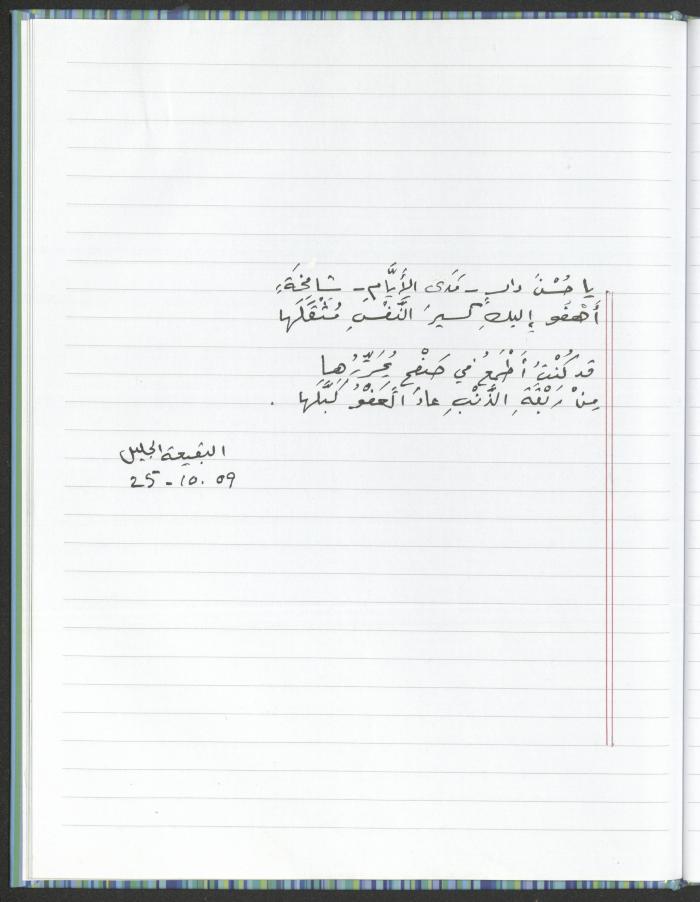 يا حُسْنَ دارٍ - مَدَى الأَيَّامِ - شامِخَةٍ
أَهْفُو إِليكِ كسيرَ النَّفْسِ مُثْقَلَها
قد كُنْتُ أَطْمَعُ في صَفْحٍ يُحَرِّرُها
مِنْ رَبْقَةِ الذَّنْبِ عادَ العَفْوُ كَبَّلَها .
البقيعة الجليل
25 - 10. 09